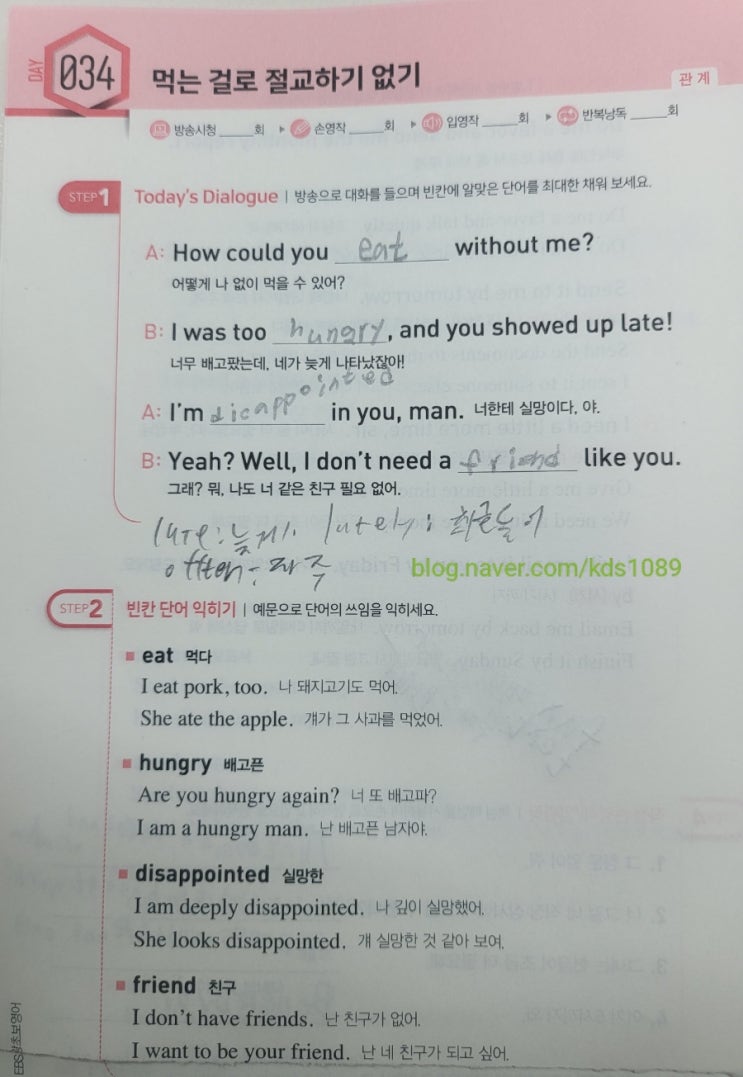 DAY 034 먹는 걸로 절교하기 없기
관계
방송시청 _____회 ▸ 손영작 _____회 ▸ 입영작 _____회 ▸ 반복낭독 _____회
STEP 1 Today's Dialogue | 방송으로 대화를 들으며 빈칸에 알맞은 단어를 최대한 채워 보세요.
A: How could you eat without me?
어떻게 나 없이 먹을 수 있어?
B: I was too hungry, and you showed up late!
너무 배고팠는데, 네가 늦게 나타났잖아!
A: I'm dicappointed in you, man. 너한테 실망이다, 야.
B: Yeah? Well, I don't need a friend like you.
그래? 뭐, 나도 너 같은 친구 필요 없어.
late: 늦게. lately:
often: 자주
blog.naver.com/kds1089
STEP 2 빈칸 단어 익히기 | 예문으로 단어의 쓰임을 익히세요.
eat 먹다
I eat pork, too. 나 돼지고기도 먹어.
She ate the apple. 걔가 그 사과를 먹었어.
hungry 배고픈
Are you hungry again? 너 또 배고파?
I am a hungry man. 난 배고픈 남자야.
disappointed 실망한
I am deeply disappointed. 나 깊이 실망했어.
She looks disappointed. 걔 실망한 것 같아 보여.
friend 친구
I don't have friends. 난 친구가 없어.
I want to be your friend. 난 네 친구가 되고 싶어.
EBS 왕초보영어